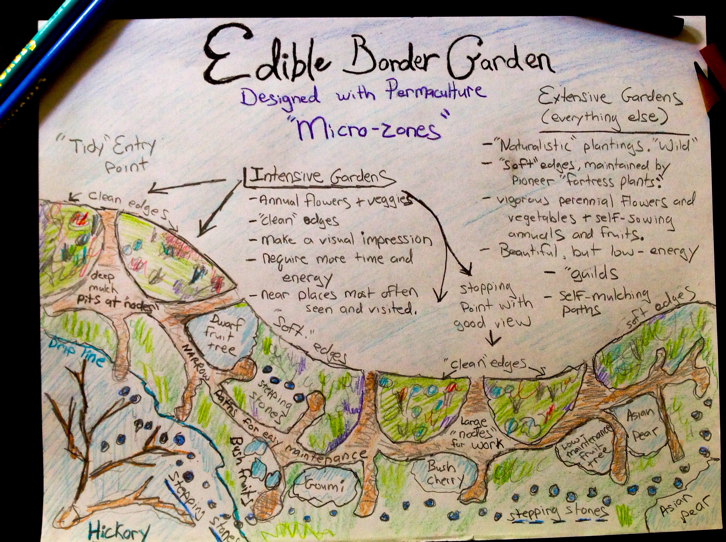 Edible Border Garden
Designed with Permaculture
"Micro-zones"
"Tidy" Entry
Point
Intensive Gardens
- Annual flowers + veggies
- "clean" edges
- make a visual impression
- require more time and
energy
- near places most often
seen and visited.
Extensive Gardens
(everything else)
- "Naturalistic" plantings. "Wild"
- "soft" edges, maintained by
Pioneer "fortress plants."
- vigorous perennial flowers and
vegetables + self-sowing
annuals and fruits.
- Beautiful, but low-energy
- "guilds
- self-mulching
paths
stopping
Point with
good view
"clean edges
deep
mulch
pits at nodes"
Dwarf
fruit
tree
"soft." edges
stepping
stones
NARROW
Paths for easy
maintenance
"clean" edges
large
"nodes"
for work
soft edges
low
maintenance
fruit
tree
Asian
Pear
Drip line
Bush fruits
Goumi
Bush
cherry
stepping stones
Asian
pear
stepping
stones
Hickory